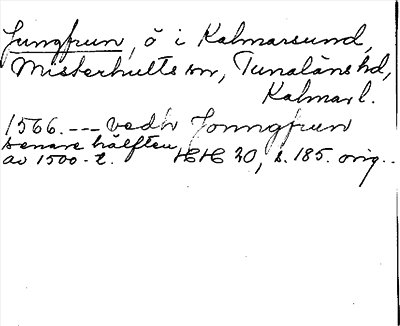 Jungfrun, ö i Kalmarsund,
Misterhults sn, Tunaläns hd,
Kalmar l.
1566. --- vedh Jonngfrun
senare hälften
av 1500-t. HH 20, s. 185. orig..